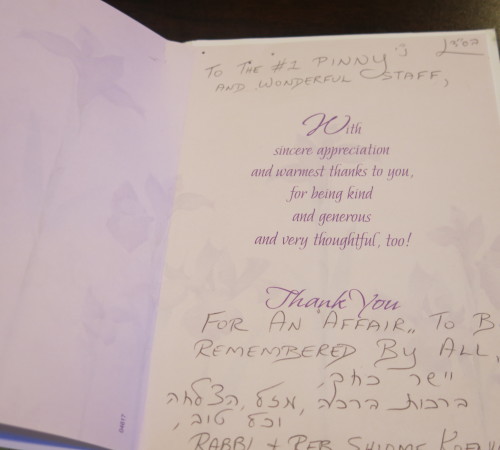 TO THE #1 PINNY'S
AND WONDERFUL STAFF,
With
sincere appreciation
and warmest thanks to you,
for being kind
and generous
and very thoughtful, too!
Thank You
FOR AN AFFAIR,, TO B
REMEMBERED BY ALL,
יישר כחך,
ברכות ברכה, מזל, הצלחה
וכל טוב,
RABBI + REB